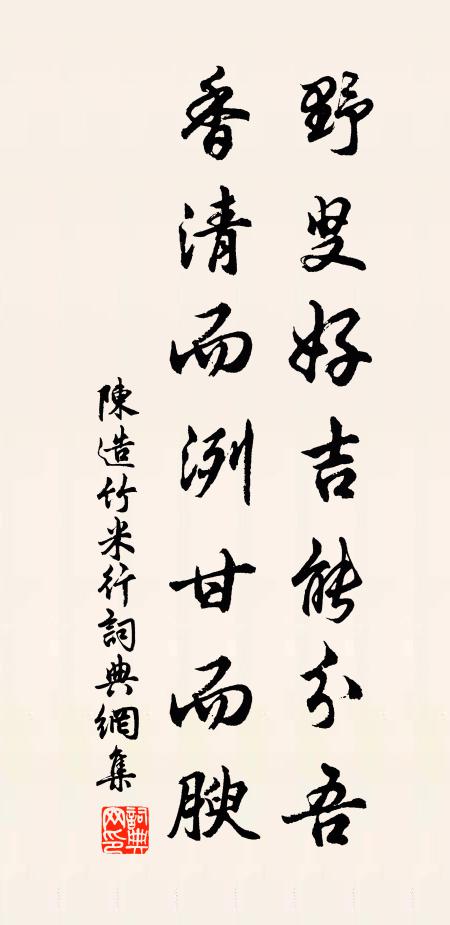 野叟好吉能分吾
香清而洌甘而腴
陳造竹米行詞典網集
詞典网印